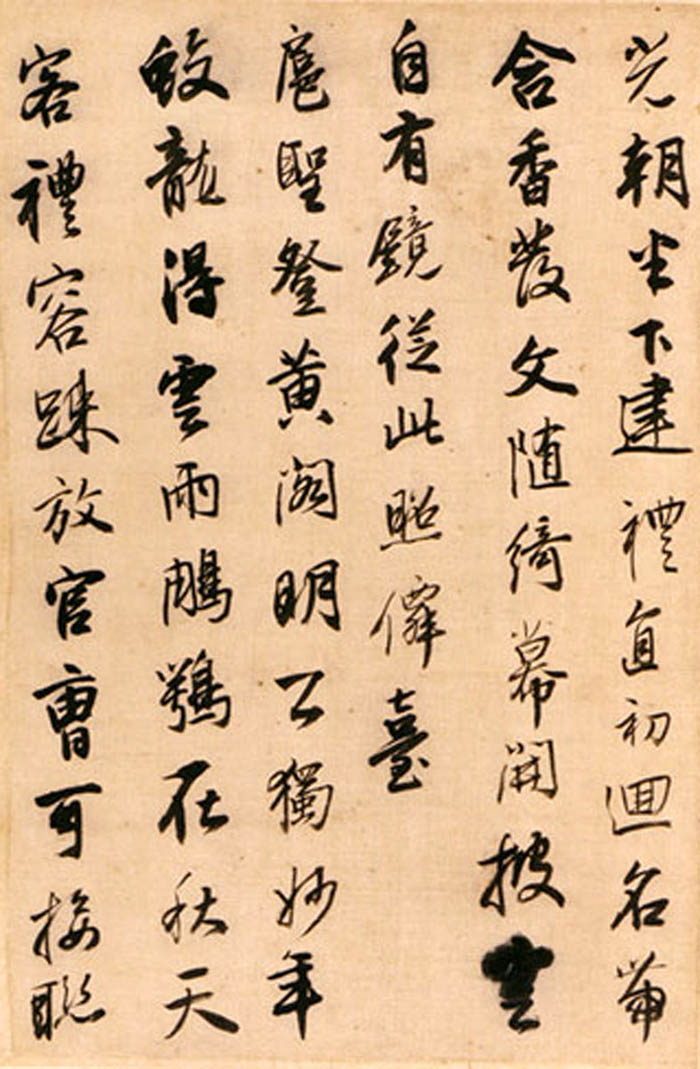 光朝半下建禮直初迴名帶
含香發文随綺幕開披雲
自有鏡從此照僊臺
扈聖登黄閣明公獨妙年
蛟龍得雲雨鵰鶚在秋天
客禮容踈放官曹可接聯